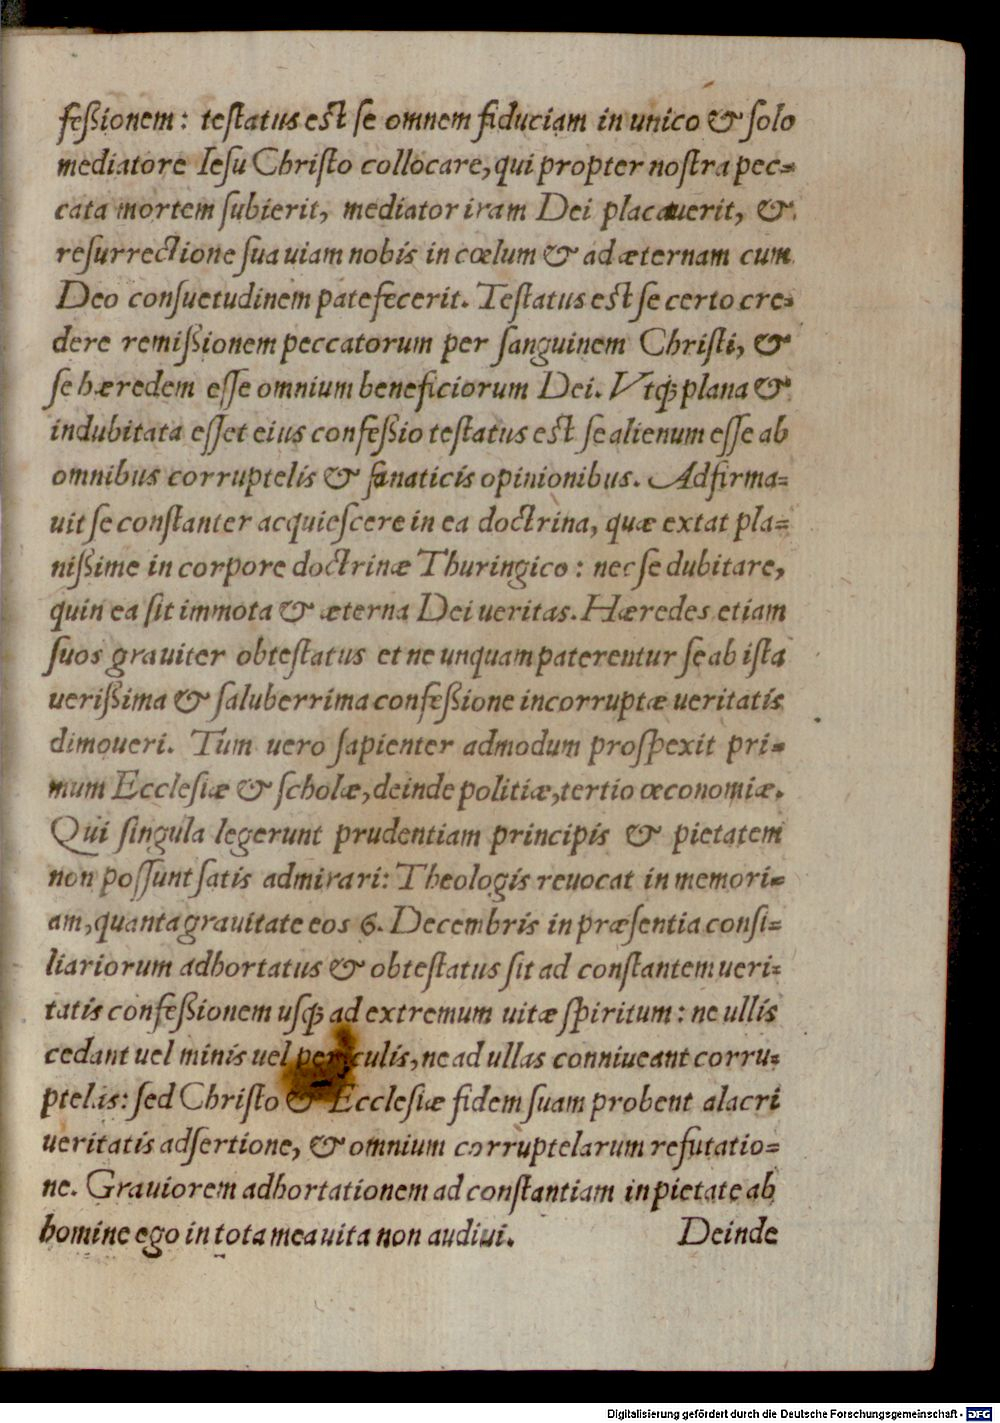 feßionem: teſtatus eſt ſe omnem fiduciam in unico & ſolo
mediatore Ieſu Chriſto collocare, qui propter noſtra pec=
cata mortem ſubierit, mediator iram Dei placauerit, &
reſurrectione ſua uiam nobis in cœlum & ad æternam cum
Deo conſuetudinem patefecerit. Teſtatus eſt ſe certo cre=
dere remißionem peccatorum per ſanguinem Chriſti, &
ſe hæredem eſſe omnium beneficiorum Dei. Vtq́ plana &
indubitata eſſet eius confeßio teſtatus eſt ſe alienum eſſe ab
omnibus corruptelis & fanaticis opinionibus. Adfirma=
uit ſe conſtanter acquieſcere in ea doctrina, quæ extat pla=
nißime in corpore doctrinæ Thuringico: nec ſe dubitare,
quin ea ſit immota & æterna Dei ueritas. Hæredes etiam
ſuos grauiter obteſtatus et ne unquam paterentur ſe ab iſta
uerißima & ſaluberrima confeßione incorruptæ ueritatis
dimoueri. Tum uero ſapienter admodum proſpexit pri=
mum Eccleſiæ & ſcholæ, deinde politiæ, tertio œconomiæ.
Qui ſingula legerunt prudentiam principis & pietatem
non poſſunt ſatis admirari: Theologis reuocat in memori=
am, quanta grauitate eos 6. Decembris in præſentia conſi=
liariorum adhortatus & obteſtatus ſit ad conſtantem ueri=
tatis confeßionem uſq́ ad extremum uitæ ſpiritum: ne ullis
cedant uel minis uel periculis, ne ad ullas conniueant corru=
ptelas: ſed Chriſto & Eccleſiæ fidem ſuam probent alacri
ueritatis adſertione, & omnium corruptelarum refutatio=
ne. Grauiorem adhortationem ad conſtantiam in pietate ab
homine ego in tota mea uita non audiui. Deinde
Digitalisierung gefördert durch die Deutsche Forschungsgemeinschaft - DFG